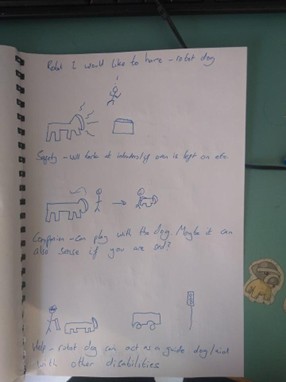 Robot I would like to have - robot dog
Safety - will bark at intruders/if oven is left on etc.
Companion - Can play with the dog. Maybe it can
also sense if you are sad?
Help - robot dog can act as a guide dog/aid
with other disabilities